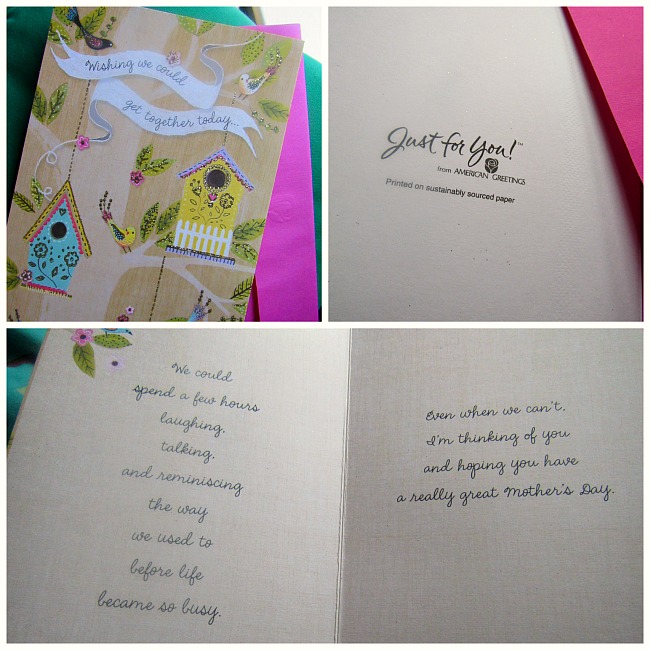 Wishing we could
get together today...
Just for You!™
from AMERICAN GREETINGS
Printed on sustainably sourced paper
We could
spend a few hours
laughing,
talking,
and reminiscing
the way
we used to
before life
became so busy.
Even when we can't,
I'm thinking of you
and hoping you have
a really great Mother's Day.